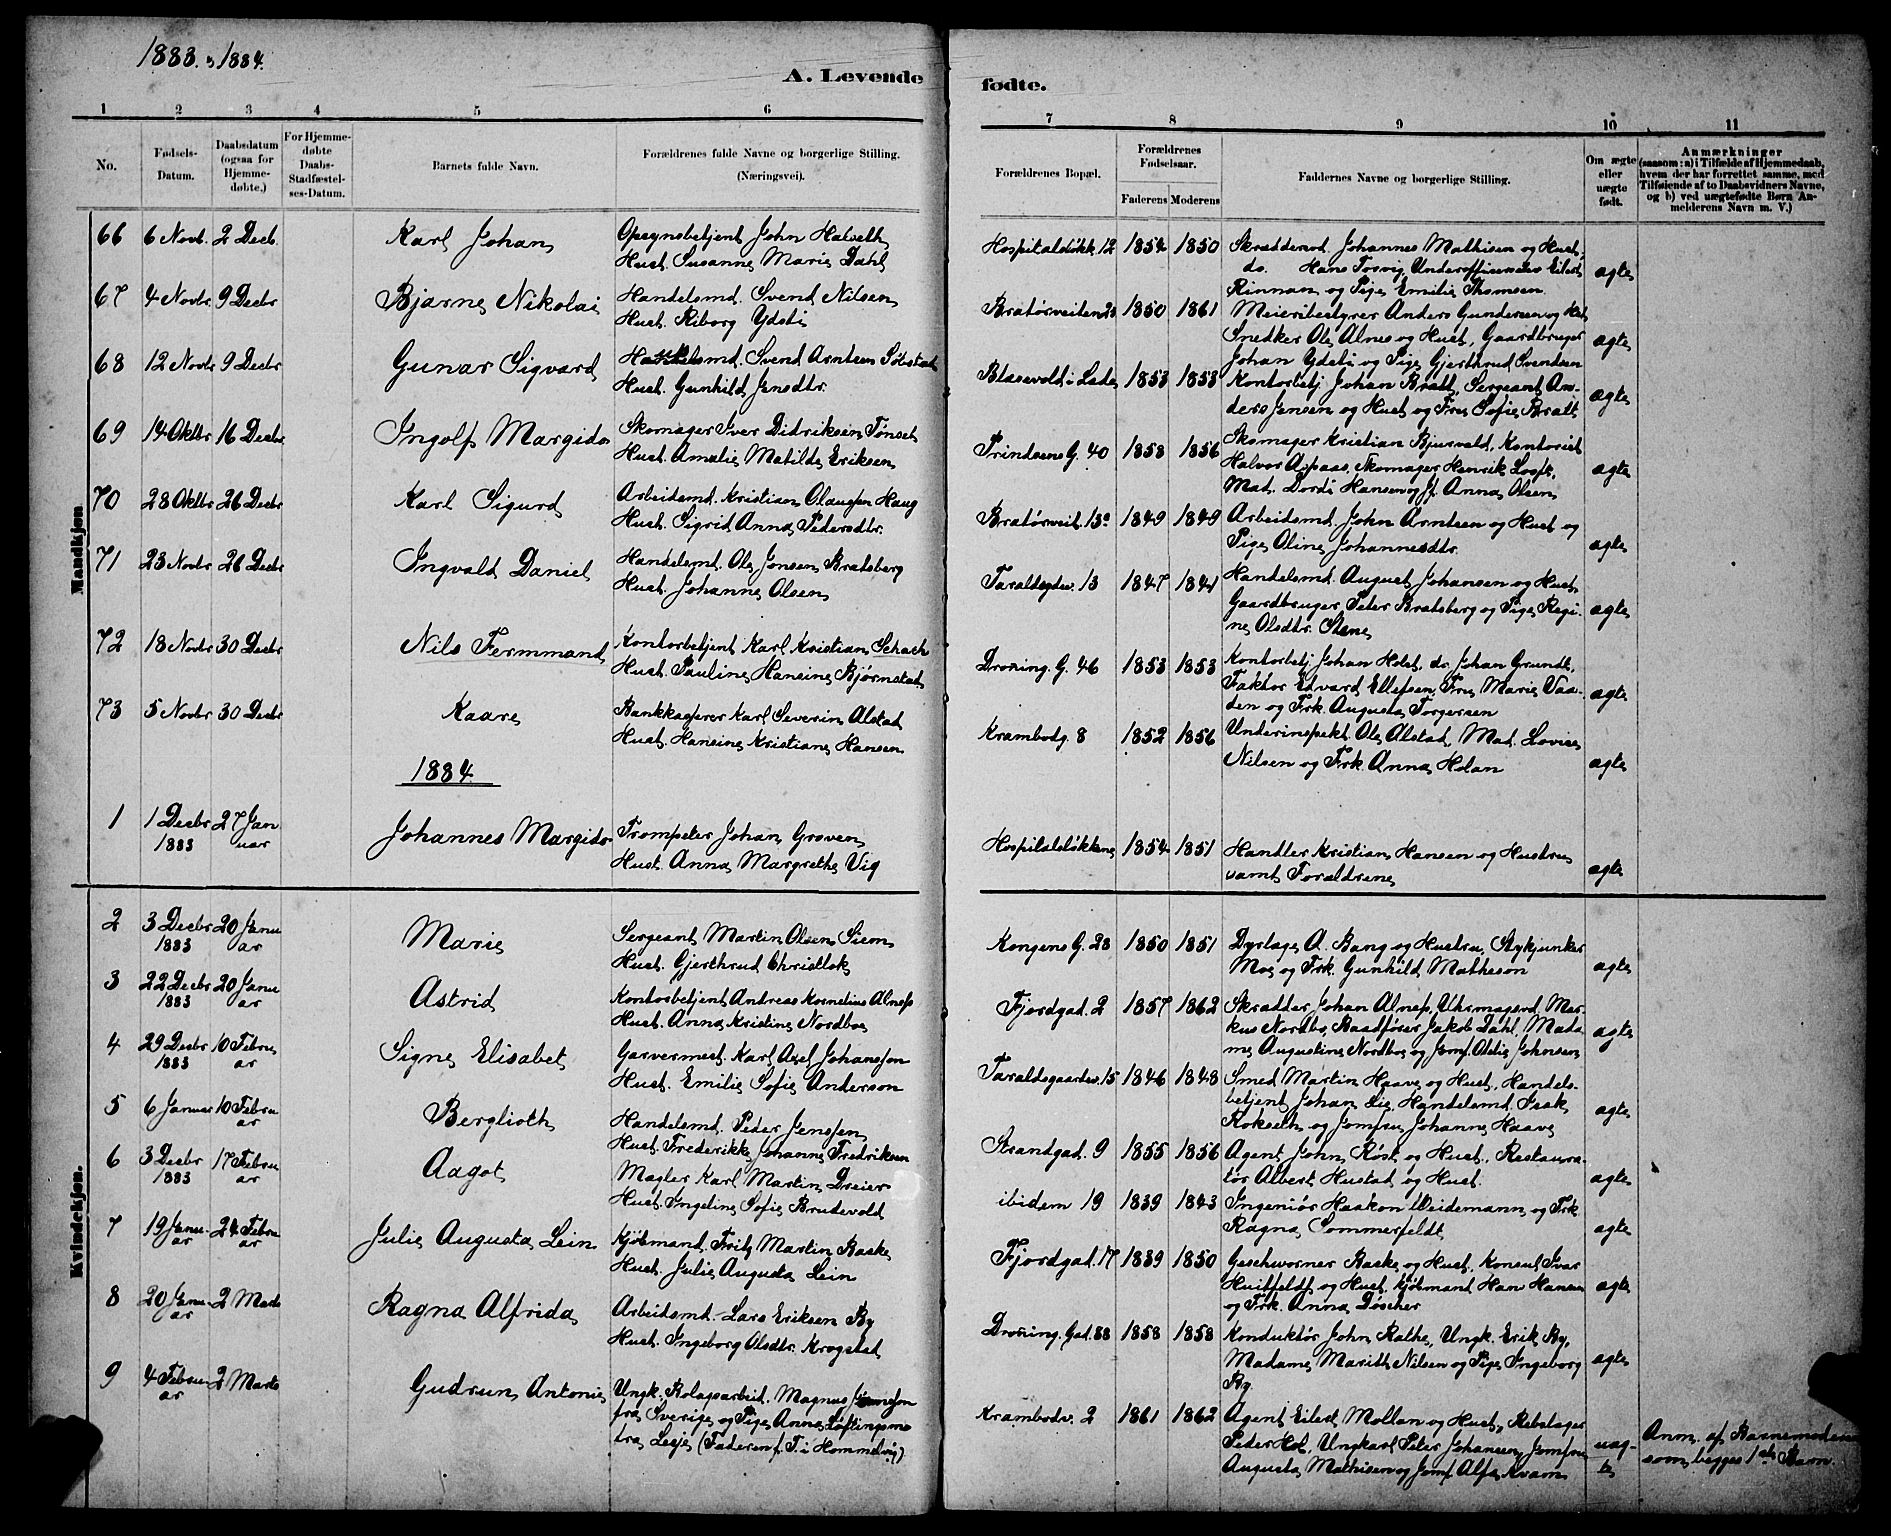 1883. & 1884.
A. Levende
fødte.
1 2 3 4 5 6
7 8 9 10 11
No.
Fødsels-
Datum.
Daabsdatum
(ogsaa for
Hjemme-
døbte.)
For Hjemme-
døbte
Daabs-
Stadfæstel-
ses-Datum.
Barnets fulde Navn.
Forældrenes fulde Navne og borgerlige Stilling.
(Næringsvei).
Forældrenes Bopæl.
Forældrenes
Fødselsaar.
Faderens Moderens
Faddernes Navne og borgerlige Stilling.
Om ægte
eller
uægte
født.
Anmærkninger
(saasom: a) i Tilfælde af Hjemmedaab,
hvem der har forrettet samme, med
Tilføiende af to Daabsvidners Navne,
og b) ved uægtefødte Børn An-
melderens Navn m. V.)
Mandkjøn.
66 6 Novb. 2 Decb. Karl Johan
Opsynsbetjent John Halseth
Hust. Susanne Marie Dahl
Hospitalsløkk. 12 1854 1850
Skræddersvd. Johannes Mathisen og Hust,
do. Hans Tosvig, Underofficerselev Eilert
Rinnan og Pige Emilie Thomsen
ægte
67 4 Novbr 9 Decbr Bjarne Nikolai
Handelsmd. Svend Nilsen
Hust. Riborg Ydsti
Bratørveiten 23 1850 1861
Meieribestyrer Anders Gundersen og Hst,
Snedker Ole Alnes og Hust, Gaardbruger
Johan Ydsti og Pige Gjerthrud Svendsen
ægte
68 12 Novbr 9 Decbr Gunar Sigvard
Handelsmd. Svend Arntsen Solstad
Hust. Gunhild Jensdtr.
Blæsevold i Lade 1853 1853
Kontorbetj Johan Bratt, Sergeant An-
ders Jensen og Hust og Fru Sofie Bratt
ægte
69 14 Oktbr 16 Decbr Ingolf Margido
Skomager Iver Didriksen Tønset
Hust. Amalie Matilde Eriksen
Prindsens G. 40 1858 1856
Skomager Kristian Bjursvald, Kontorist
Halvor Aspaas, Skomager Henrik
Mad. Dordi Hansen og Jf. Anna Olsen
ægte
70 28 Oktbr 26 Decbr Karl Sigurd
Arbeidsmd. Kristian Olaussen Haug
Hust. Sigrid Anna Pedersdtr.
Bratørveit. 13a 1849 1849
Arbeidsmd. John Arntsen og Hust og
Pige Oline Johannesdtr.
ægte
71 23 Novbr 26 Decbr Ingvald Daniel
Handelsmd. Ole Jonsen Bratsberg
Hust. Johanne Olsen
Taraldsgdsv. 13 1847 1841
Handelsmd. August Johansen og Hust
Gaardbruger Peter Bratsberg og Pige Regi-
ne Olsdtr. Stene
ægte
72 18 Novbr 30 Decbr Nils Fermmand
Kontorbetjent Karl Kristian Schach
Hust. Pauline Hansine Bjørnstad
Droning. G. 46 1853 1853
Kontorbetj Johan Holst, do. Johan Grundt,
Faktor Edvard Ellefsen, Fru Marie Vaa-
den og Frk. Augusta Torgersen
ægte
73 5 Novbr 30 Decbr Kaare
Bankkasserer Karl Severin Alstad
Hust. Hansine Kristiane Hansen
Krambodg. 8 1852 1856
Underinspekt Ole Alstad, Mad. Lovise
Nilsen og Frk. Anna Holan
ægte
1884
1 1 Decbr 1883 27 Januar Johannes Margido
Trompeter Johan Groven
Hust. Anna Margrethe Vig
Hospitalsløkken 1854 1851
Handler Kristian Hansen og Hustru
samt Forældrene
ægte
Kvindekjøn.
2 3 Decbr 1883 20 Januar Marie
Sergeant Martin Olsen Siem
Hust. Gjerthrud Christlok
Kongens G. 28 1850 1851
Dyrlæge A. Bang og Hustru, Stykjunker
Moe og Frk. Gunhild Matheson
ægte
3 22 Decbr 1883 20 Januar Astrid
Kontorbetjent Andreas Kornelius Alness
Hust. Anna Kristine Nordbo
Fjordgad. 2 1857 1862
Skrædder Johan Alness, Uhrmagersvd. Mar-
kus Nordbo, Baadfører Jakob Dahl, Mada-
me Augustine Nordbo og Jomf. Otelie Johnsen
ægte
4 29 Decbr 1883 10 Februar Signe Elisabet
Garvermest. Karl Axel Johanson
Hust. Emilie Sofie Anderson
Taraldsgaardsv. 15 1846 1848
Smed Martin Haave og Hust, Handels-
betjent Johan Lie, Handelsmd. Isak
Rokseth og Jomfru Johanne Haave
ægte
5 6 Januar 10 Februar Berglioth
Handelsmd. Peder Jenssen
Hust. Frederikke Johanne Fredriksen
Strandgad. 9 1855 1856
Agent John Røst og Hust, Restaura-
tør Albert Hustad og Hust
ægte
6 3 Decbr 1883 17 Februar Aagot
Mægler Karl Martin Dreier
Hust. Ingeline Sofie Brudevold
ibidem 19 1839 1843
Ingeniør Haakon Weidemann og Frk.
Ragna Sommerfeldt
ægte
7 19 Januar 24 Februar Julie Augusta Lein
Kjøbmand Fritz Martin Baske
Hust. Julie Augusta Lein
Fjordgad. 17 1839 1850
Geschworner Baske og Hust, Konsul Ivar
Huitfeldt og Hust, Kjøbmand Han Hansen
og Frk. Anna Døscher
ægte
8 20 Januar 2 Marts Ragna Alfrida
Arbeidsmd. Lars Eriksen By
Hust. Ingeborg Olsdtr. Krogstad
Droning. Gad. 38 1858 1858
Konduktør John Rathe, Ungk. Erik By,
Madame Marith Nilsen og Pige Ingeborg
By.
ægte
9 4 Februar 2 Marts Gudrun Antonie
Ungk. Bolagsarbeid. Magnus
fra Sverige og Pige Anna
fra Lesje (Faderen f. T. i Hommelvig)
Krambodv. 2 1861 1862
Agent Eilert Mollan og Hust, Rebslager
Peder Hol, Ungkarl Peter Johansen, Jomfru
Augusta Mathisen og Jomf. Alfe Kvam
uæg-
te
Anm. af Barnemoderen
som begges 1ste Barn.